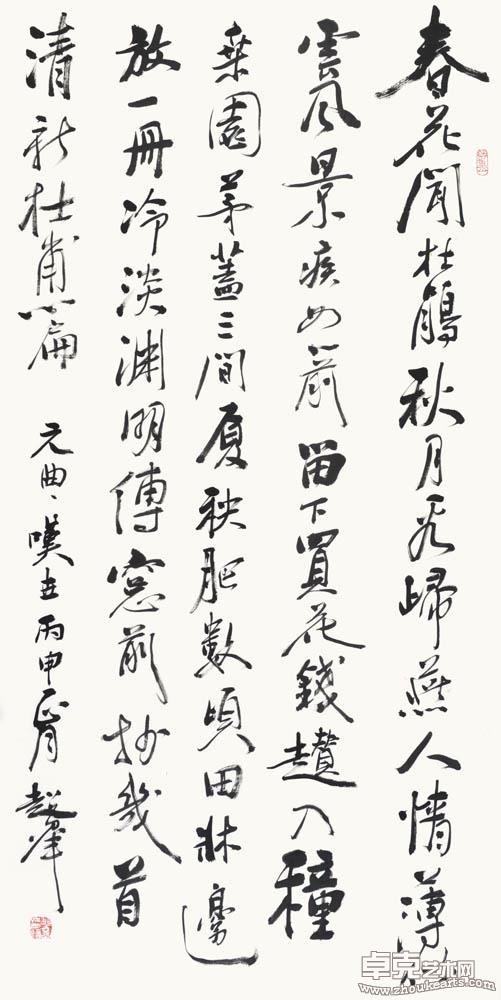 春花聞杜鵑秋月看歸燕人情薄似
雲風景疾如箭留下買花錢趲入種
桒園茅蓋三間厦秧肥數頃田牀邊
放一冊冷淡淵明傳窓前抄幾首
清新杜甫篇
元曲、嘆世丙申正月趙
卓克艺术网
www.zhoukearts.com